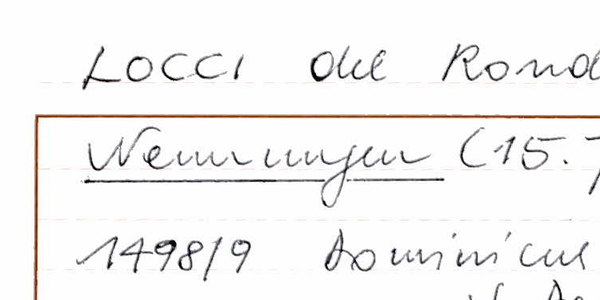 LOCCI del Rond
Nennungen (15.7
1498/9 Dominicus